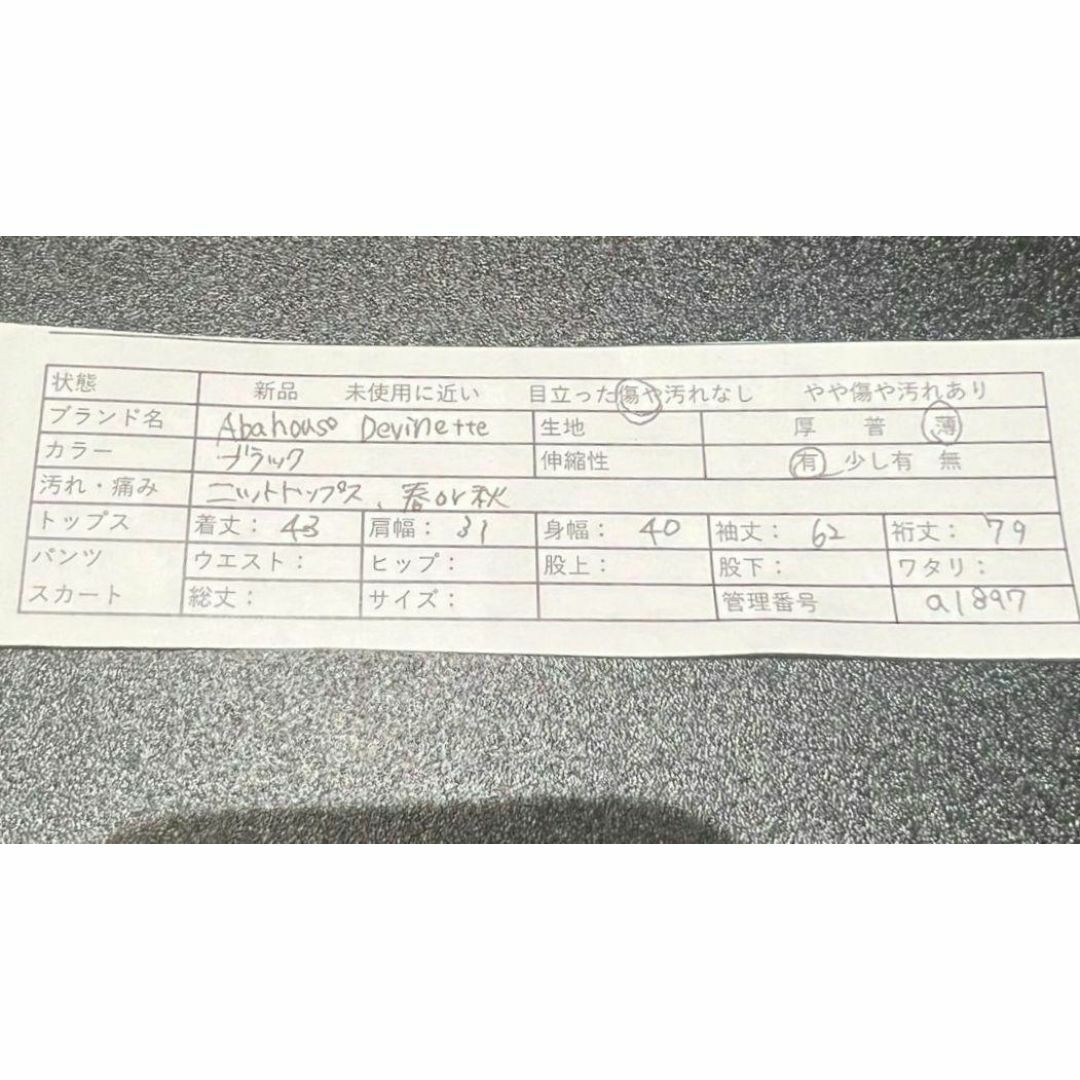 状態 新品 未使用に近い 目立った傷や汚れなし やや傷や汚れあり
ブランド名 Abahouse Devinette 生地 厚 普 薄
カラー ブラック 伸縮性 有 少し有 無
汚れ・痛み ニットトップス、春or秋
トップス 着丈: 43 肩幅: 31 身幅: 40 袖丈: 62 裄丈: 79
パンツ ウエスト: ヒップ: 股上: 股下: ワタリ:
スカート 総丈: サイズ: 管理番号 a1897